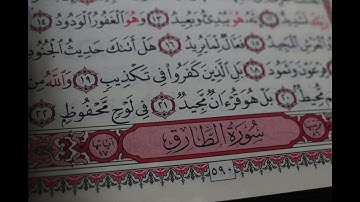 لَشَدِيدٌ ١٢ إِنَّهُ هُوَ يُبْدِئُ وَيُعِيدُ ١٣ وَهُوَ الْغَفُورُ الْوَدُودُ ١٤
ذُو الْعَرْشِ الْمَجِيدُ ١٥ فَعَّالٌ لِمَا يُرِيدُ ١٦ هَلْ أَتَاكَ حَدِيثُ الْجُنُودِ
فِرْعَوْنَ وَثَمُودَ ١٨ بَلِ الَّذِينَ كَفَرُوا فِي تَكْذِيبٍ ١٩ وَاللَّهُ مِن
مُحِيطٌ ٢٠ بَلْ هُوَ قُرْآنٌ مَجِيدٌ ٢١ فِي لَوْحٍ مَحْفُوظٍ ٢٢
سُورَةُ الطَّارِقِ
آياتها ١٧
٥٩٠